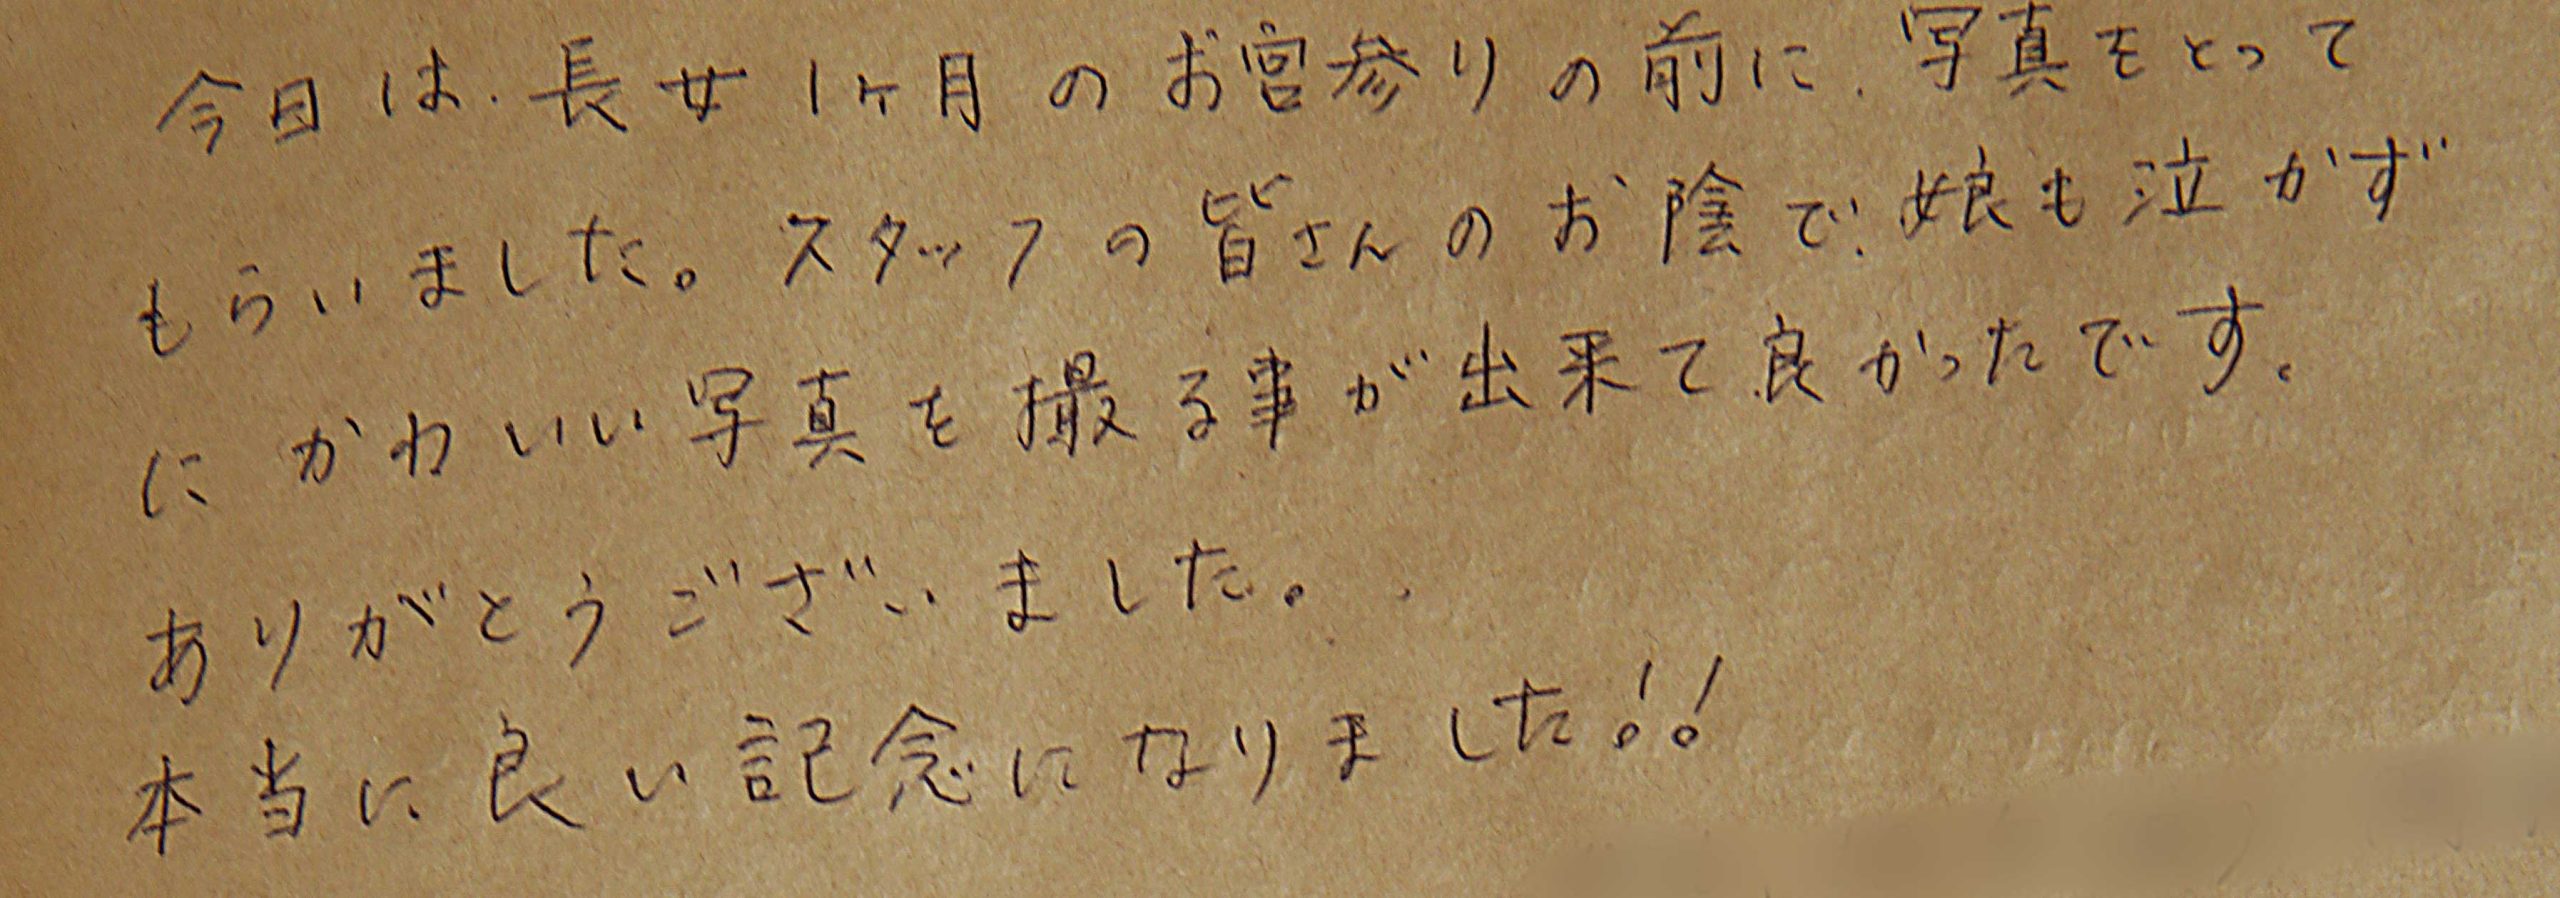 今日は、長女1ヶ月のお宮参りの前に、写真をとって
もらいました。スタッフの皆さんのお陰で、娘も泣かず
にかわいい写真を撮る事が出来て良かったです。
ありがとうございました。
本当に良い記念になりました!!